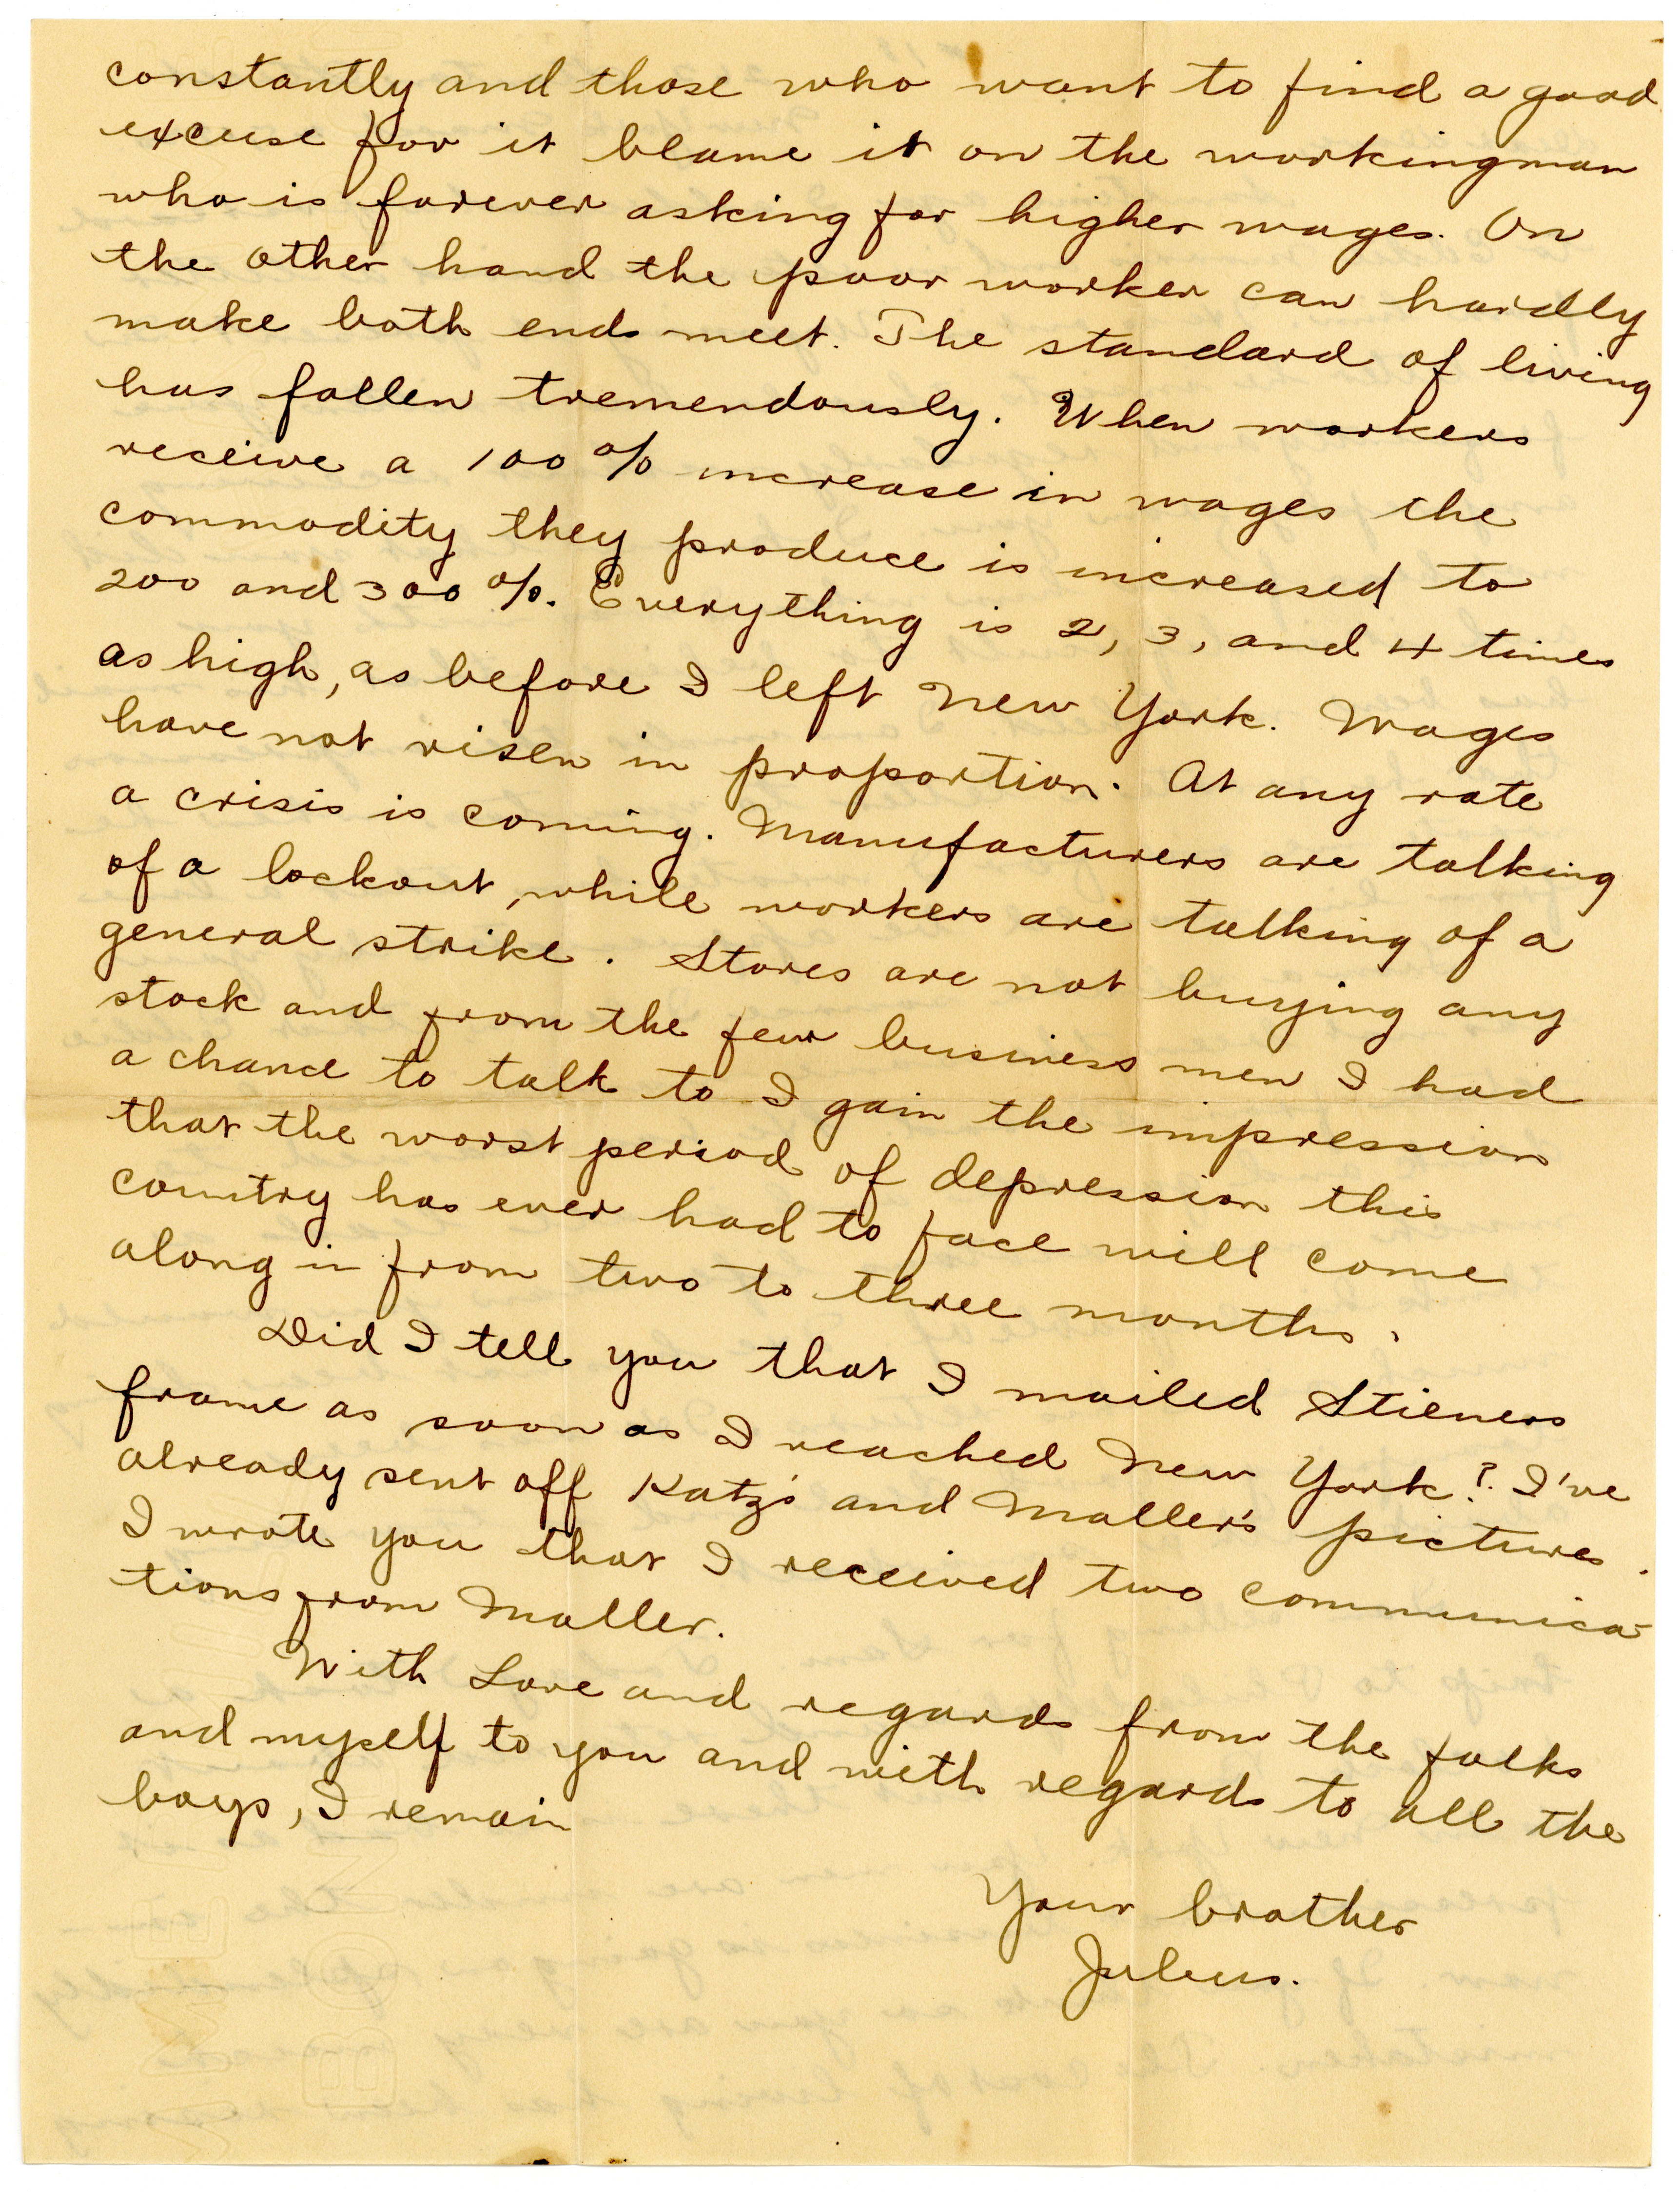 constantly and those who want to find a good
excuse for it blame it on the workingman
who is forever asking for higher wages. On
the other hand the poor worker can hardly
make both ends meet. The standard of living
has fallen tremendously. When workers
receive a 100% increase in wages the
commodity they produce is increased to
200 and 300%. Everything is 2, 3, and 4 times
as high, as before I left New York. Wages
have not risen in proportion. At any rate
a crisis is coming. Manufacturers are talking
of a lockout, while workers are talking of a
general strike. Stores are not buying any
stock and from the few business men I had
a chance to talk to I gain the impression
that the worst period of depression this
country has ever had to face will come
along in from two to three months.
Did I tell you that I mailed Stieners
frame as soon as I reached New York? I've
already sent off Katz's and Maller's pictures.
I wrote you that I received two communica-
tions from Maller.
With Love and regards from the folks
and myself to you and with regards to all the
boys, I remain
Your brother
Julius.